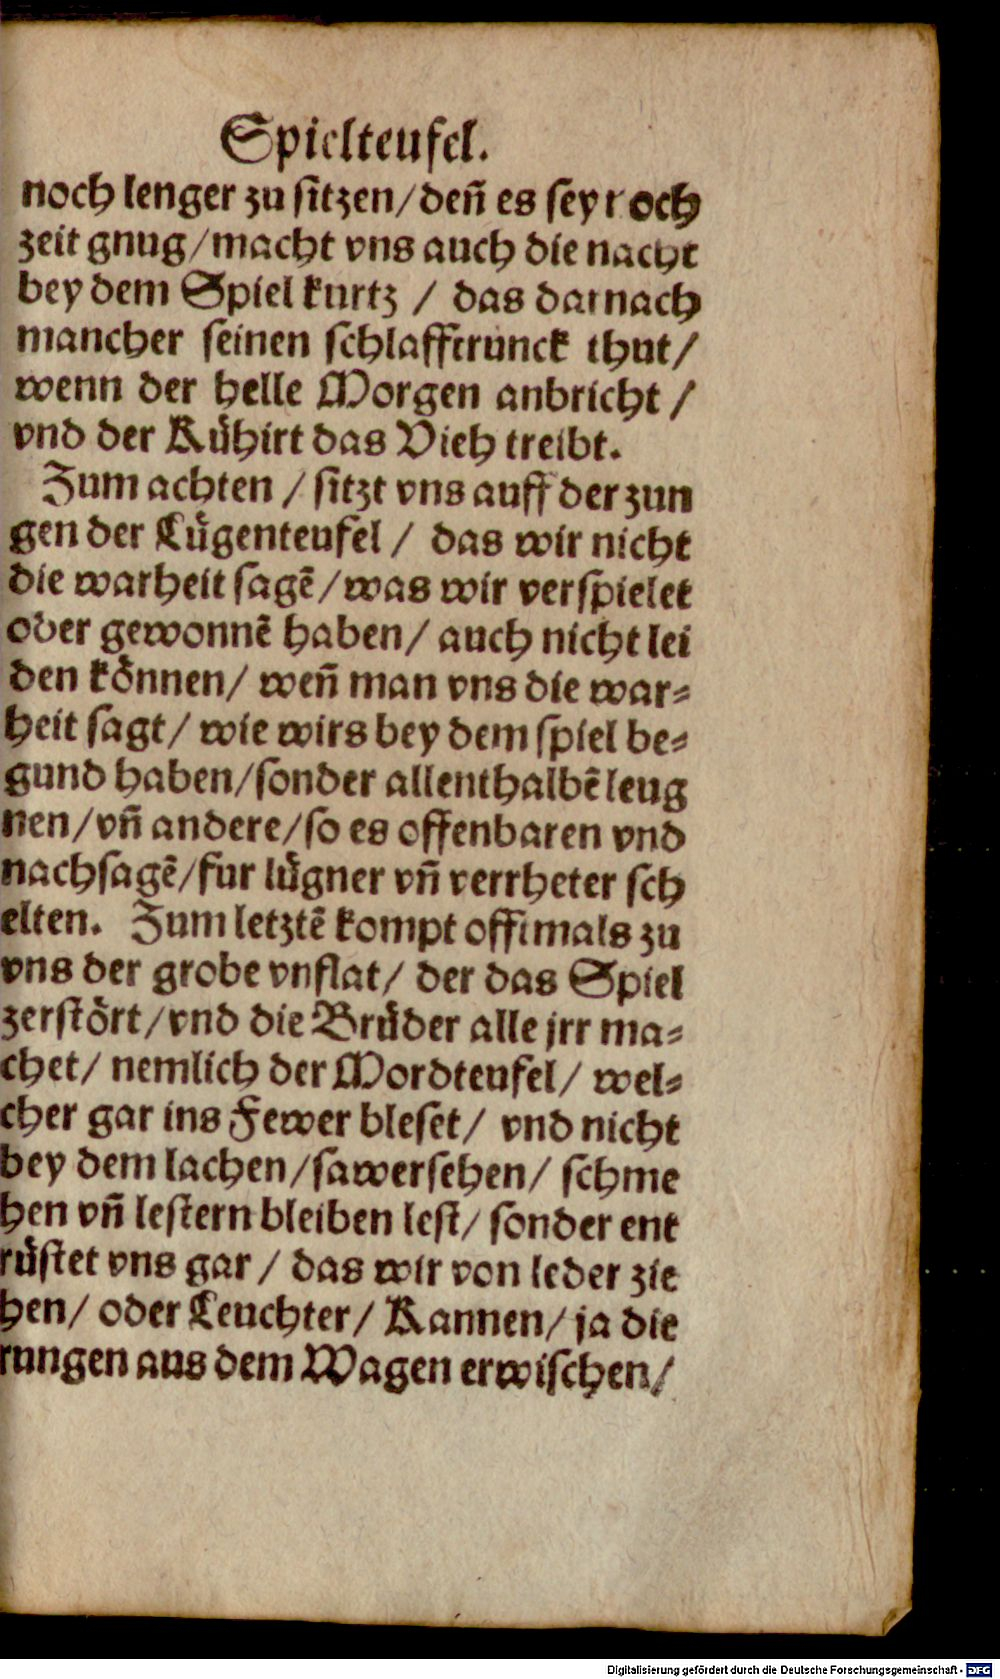 Spielteufel.
noch lenger zu sitzen/ deñ es sey noch
zeit gnug/ macht vns auch die nacht
bey dem Spiel kurtz / das darnach
mancher seinen schlafftrunck thut/
wenn der helle Morgen anbricht /
vnd der Kühirt das Vieh treibt.
Zum achten / sitzt vns auff der zun
gen der Lügenteufel / das wir nicht
die warheit sagẽ/ was wir verspielet
oder gewonnẽ haben/ auch nicht lei
den können/ weñ man vns die war-
heit sagt/ wie wirs bey dem spiel be-
gund haben/ sonder allenthalbẽ leug
nen/ vñ andere/ so es offenbaren vnd
nachsagẽ/ fur lügner vñ verrheter sch
elten. Zum letztẽ kompt offtmals zu
vns der grobe vnflat/ der das Spiel
zerstört/ vnd die Brüder alle jrr ma-
chet/ nemlich der Mordteufel/ wel-
cher gar ins Fewer bleset/ vnd nicht
bey dem lachen/ sawersehen/ schme
hen vñ lestern bleiben lest/ sonder ent
rüstet vns gar / das wir von leder zie
hen/ oder Leuchter/ Kannen/ ja die
rungen aus dem Wagen erwischen/
Digitalisierung gefördert durch die Deutsche Forschungsgemeinschaft - DFG